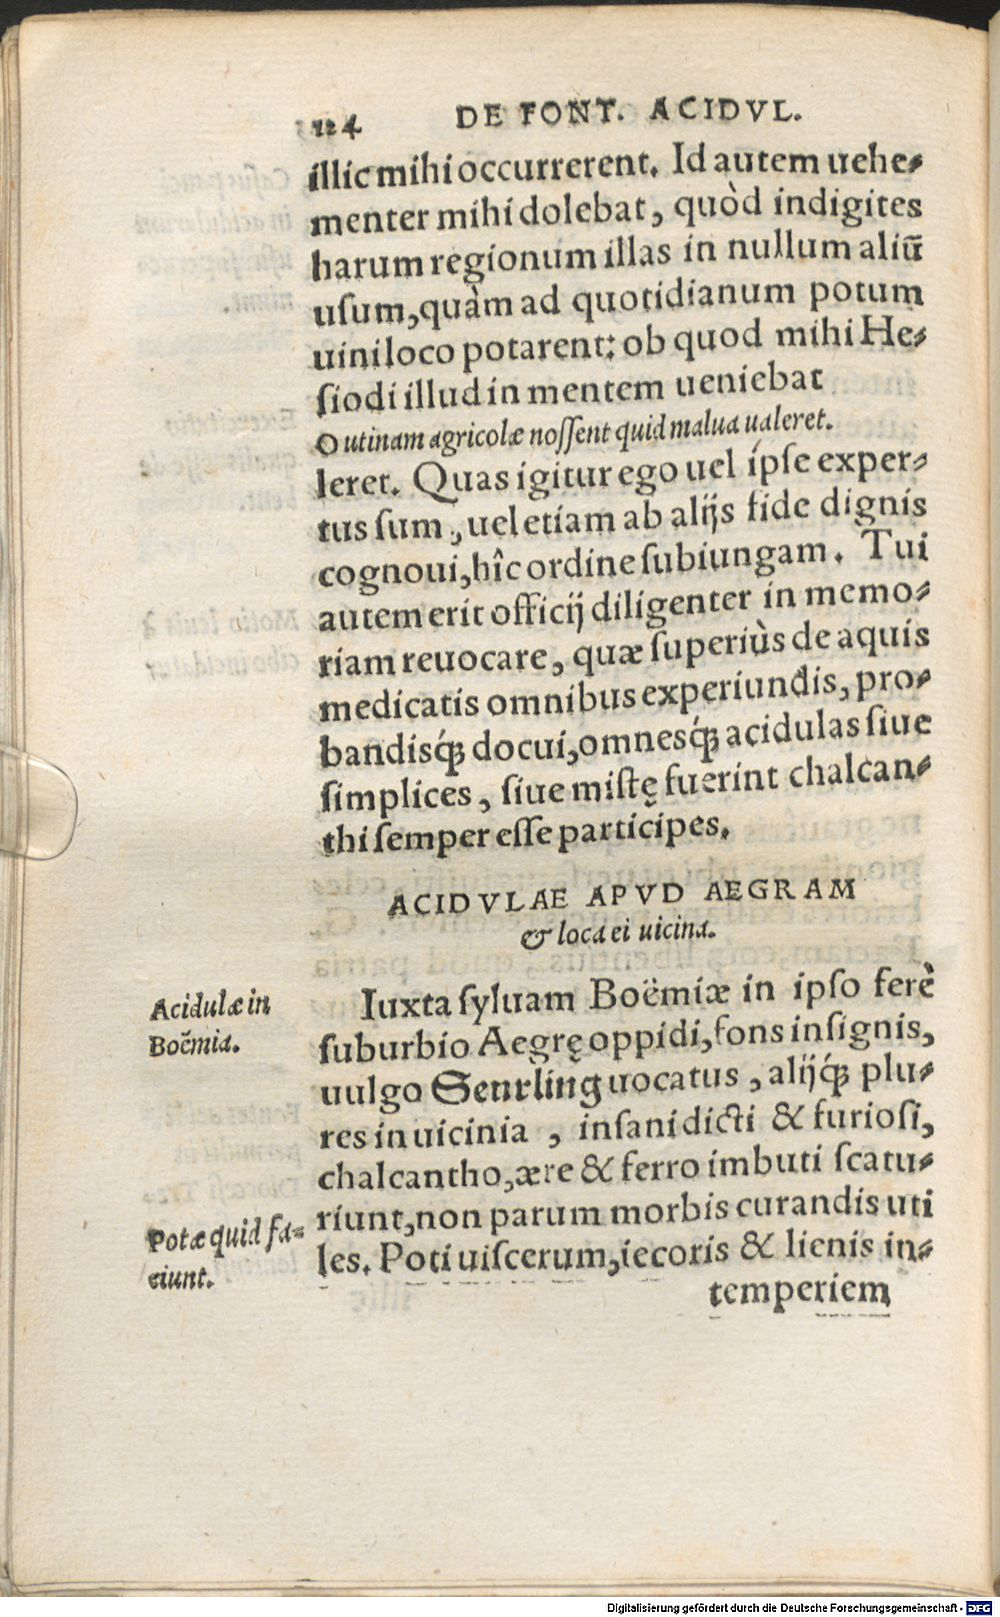 124 DE FONT. ACIDVL.
illic mihi occurrerent. Id autem uehe-
menter mihi dolebat, quòd indigites
harum regionum illas in nullum aliū
usum, quàm ad quotidianum potum
uini loco potarent: ob quod mihi He-
siodi illud in mentem ueniebat
O utinam agricolæ nossent quid malua ualeret.
leret. Quas igitur ego uel ípse exper-
tus sum, uel etiam ab alijs fide dignis
cognoui, hîc ordine subiungam. Tui
autem erit officij diligenter in memo-
riam reuocare, quæ superiùs de aquis
medicatis omnibus experiundis, pro-
bandisq́ꝫ docui, omnesq́ꝫ acidulas siue
simplices, siue mistę fuerint chalcan-
thi semper esse participes.
ACIDVLAE APVD AEGRAM
& loca ei uicina.
Acidulæ in
Boëmia.
Iuxta syluam Boëmiæ in ipso ferè
suburbio Aegrę oppidi, fons insignis,
uulgo Seurling uocatus, alijq́ꝫ plu-
res in uicinia, insani dicti & furiosi,
chalcantho, ære & ferro imbuti scatu-
riunt, non parum morbis curandis uti
les. Poti uiscerum, iecoris & lienis in-
Potæ quid fa-
ciunt.
temperiem
Digitalisierung gefördert durch die Deutsche Forschungsgemeinschaft - DFG